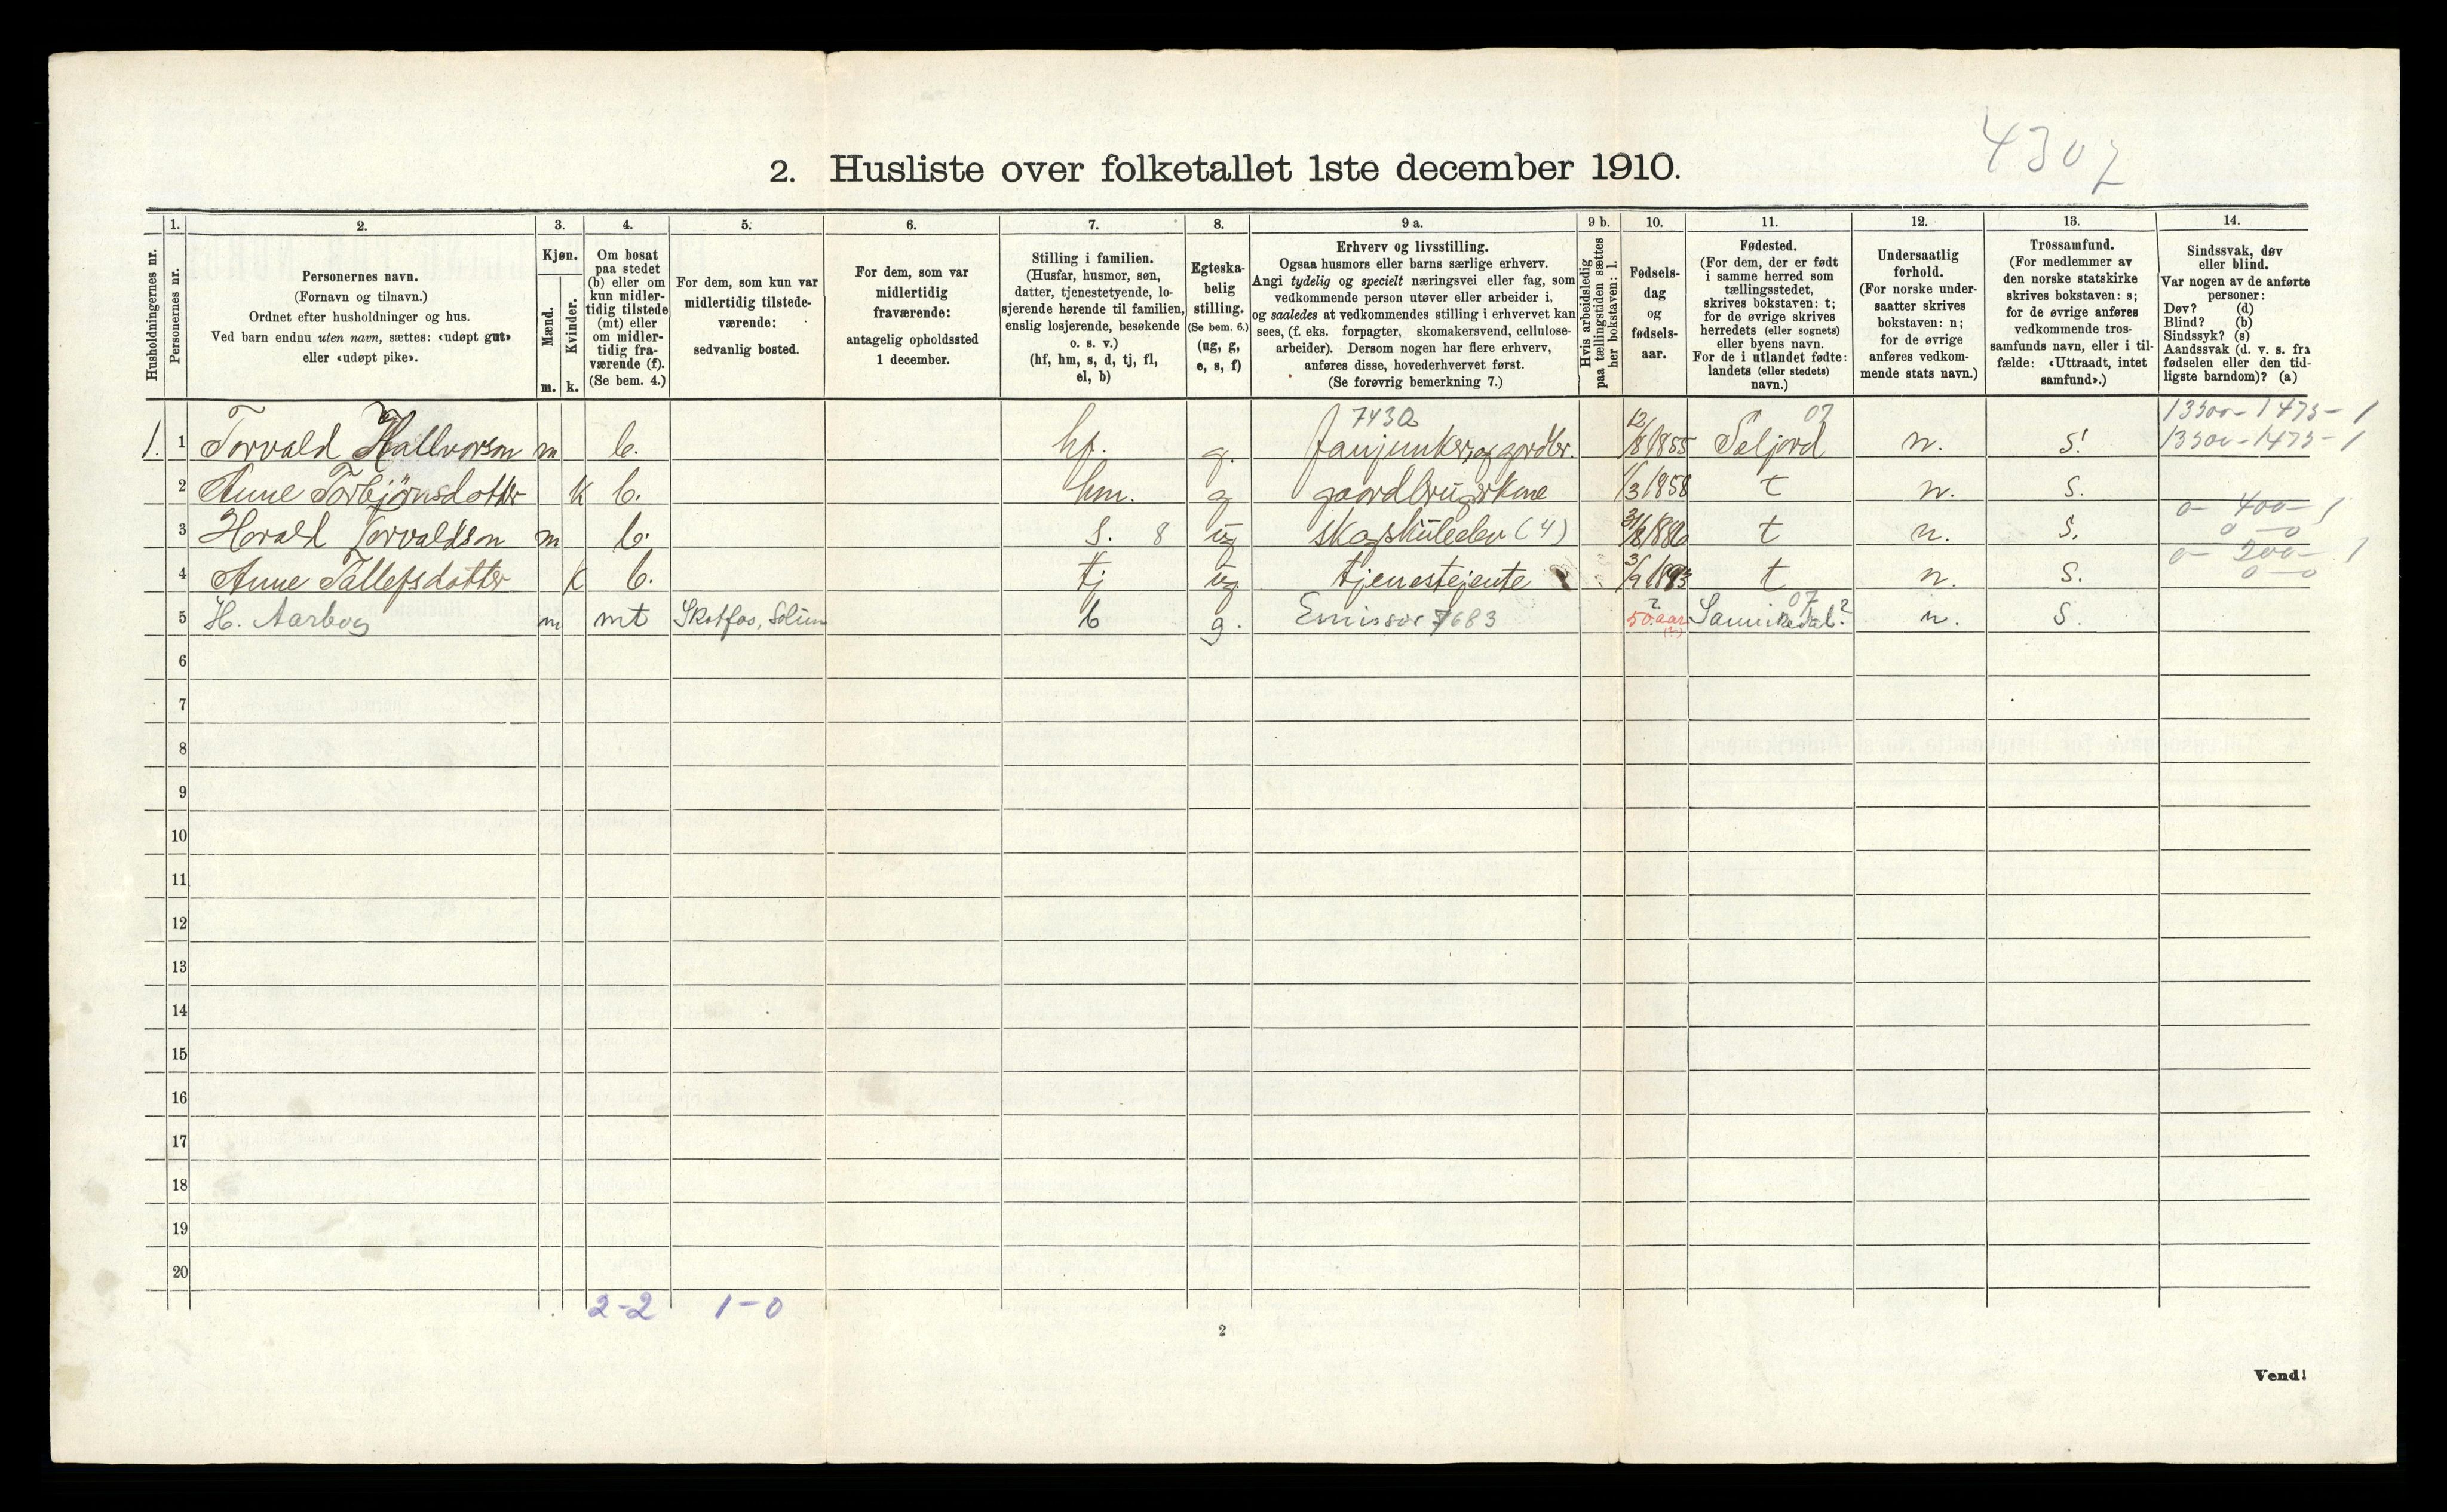 4307
2. Husliste over folketallet 1ste december 1910.
Husholdningernes nr.
1.
Personernes nr.
2.
Personernes navn.
(Fornavn og tilnavn.)
Ordnet efter husholdninger og hus.
Ved barn endnu uten navn, sættes: «udøpt gut»
eller «udøpt pike».
3.
Kjøn.
Mænd.
Kvinder.
m. k.
4.
Om bosat
paa stedet
(b) eller om
kun midler-
tidig tilstede
(mt) eller
om midler-
tidig fra-
værende (f).
(Se bem. 4.)
5.
For dem, som kun var
midlertidig tilstede-
værende:
sedvanlig bosted.
6.
For dem, som var
midlertidig
fraværende:
antagelig opholdssted
1 december.
7.
Stilling i familien.
(Husfar, husmor, søn,
datter, tjenestetyende, lo-
sjerende hørende til familien,
enslig losjerende, besøkende
o. s. v.)
(hf, hm, s, d, tj, fl,
el, b)
8.
Egteska-
belig
stilling.
(Se bem. 6.)
(ug, g,
e, s, f)
9 a.
Erhverv og livsstilling.
Ogsaa husmors eller barns særlige erhverv.
Angi tydelig og specielt næringsvei eller fag, som
vedkommende person utøver eller arbeider i,
og saaledes at vedkommendes stilling i erhvervet kan
sees, (f. eks. forpagter, skomakersvend, cellulose-
arbeider). Dersom nogen har flere erhverv,
anføres disse, hovederhvervet først.
(Se forøvrig bemerkning 7.)
9 b.
Hvis arbeidsledig
paa tællingstiden sættes
her bokstaven: l.
10.
Fødsels-
dag
og
fødsels-
aar.
11.
Fødested.
(For dem, der er født
i samme herred som
tællingsstedet,
skrives bokstaven: t;
for de øvrige skrives
herredets (eller sognets)
eller byens navn.
For de i utlandet fødte:
landets (eller stedets)
navn.)
12.
Undersaatlig
forhold.
(For norske under-
saatter skrives
bokstaven: n;
for de øvrige
anføres vedkom-
mende stats navn.)
13.
Trossamfund.
(For medlemmer av
den norske statskirke
skrives bokstaven: s;
for de øvrige anføres
vedkommende tros-
samfunds navn, eller i til-
fælde: «Uttraadt, intet
samfund».)
14.
Sindssvak, døv
eller blind.
Var nogen av de anførte
personer:
Døv? (d)
Blind? (b)
Sindssyk? (s)
Aandssvak (d. v. s. fra
fødselen eller den tid-
ligste barndom)? (a)
7430 07 13500-1475-1
1. 1 Torvald Hallvorson m b. hf. g. fanjunker, og gordbr. 12/8 1855 Seljord n. s! 13500-1475-1
2 Anne Torbjørnsdotter k b. hm. g gaordbrugerkone 1/3 1858 t n. s.
0- 400- 1
3 Horald Torvaldson m b. s. 8 ug skogskuleelev (4) t n. s. 0-0
0- 200- 1
4 Anne Tallefsdotter k b. tj ug tjenestejente 3/9 1893 t n. s. 0-0
? 07
5 H. Aarbog m mt Skotfos, Solum b g. Emissær 7683 50 aar (?) Sannikedal? n. s.
6
7
8
9
10
11
12
13
14
15
16
17
18
19
20
2-2 1-0
2
Vend!